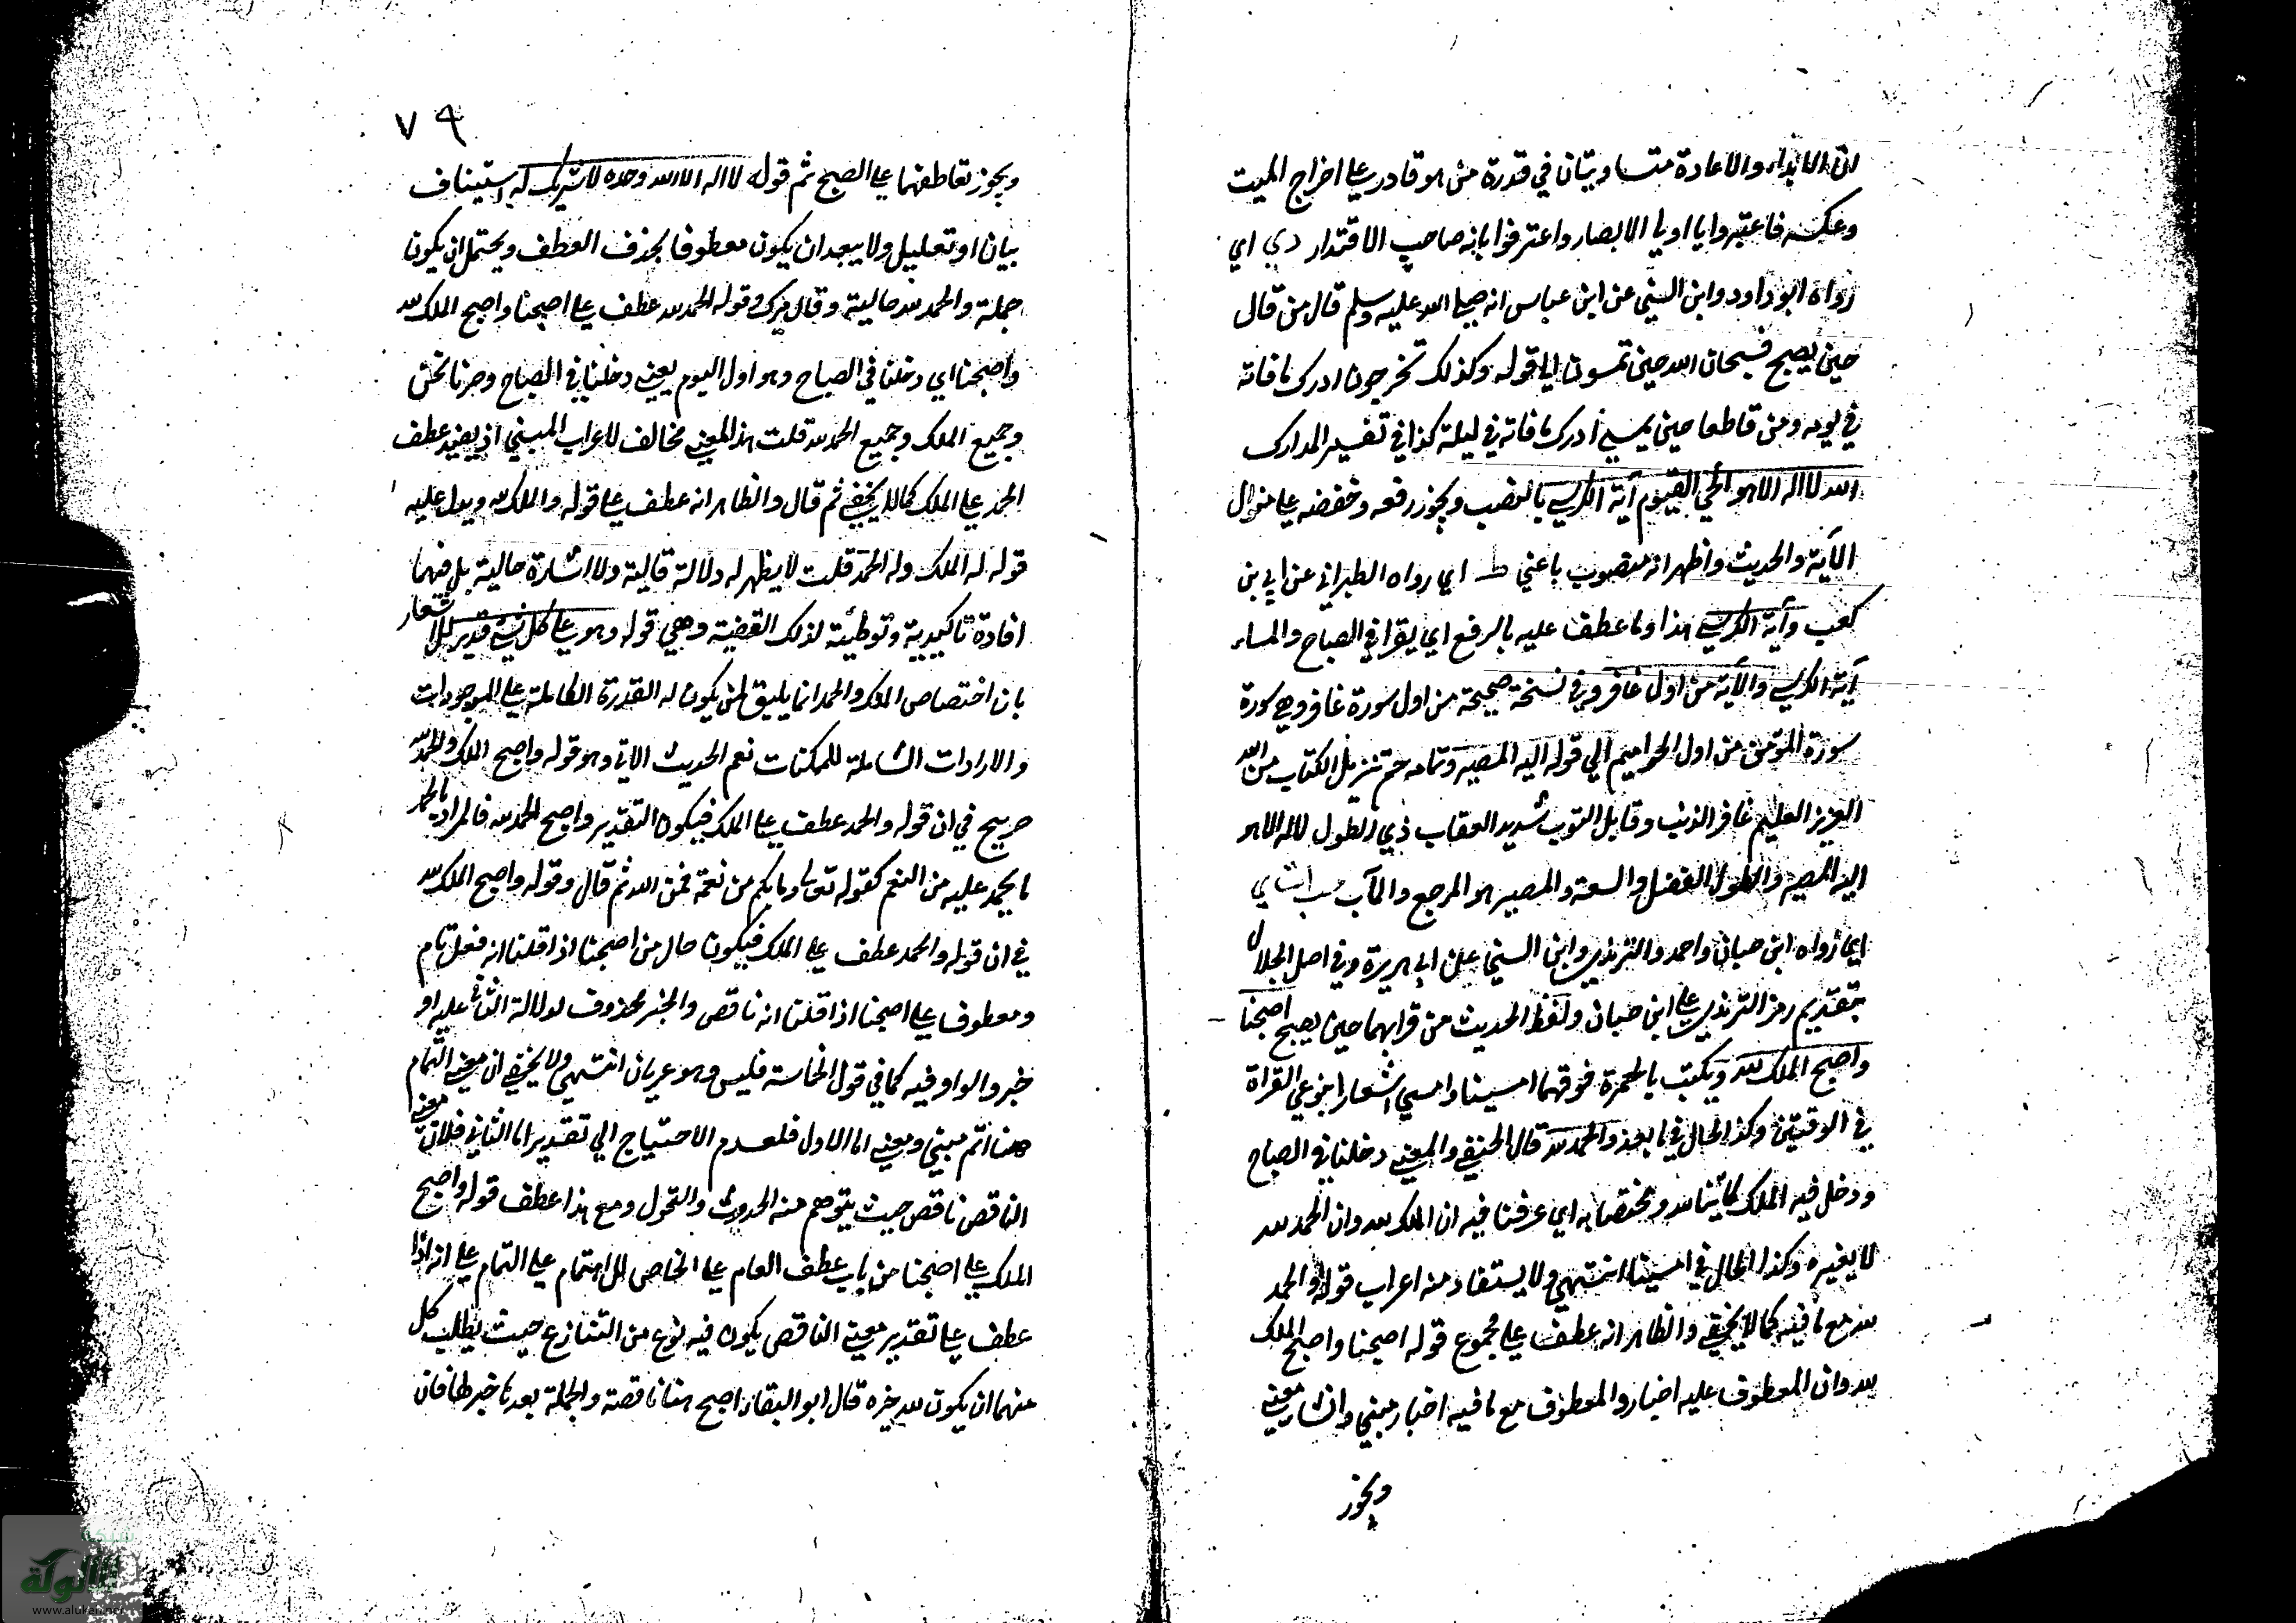 ان الابداء والاعادة متساويتان في قدرة من هو قادر على اخراج الميت
وعكسه فاعتبروا يا اولي الابصار واعترفوا بانه صاحب الاقتدار د ي اي
رواه ابو داود وابن السني عن ابن عباس انه صلى الله عليه وسلم قال من قال
حين يصبح فسبحان الله حين تمسون الى قوله وكذلك تخرجون ادرك ما فاته
في يومه ومن قالها حين يمسي ادرك ما فاته في ليلة كذا في تفسير المدارك
الله لا اله الا هو الحي القيوم آية الكرسي بالنصب ويجوز رفعه وخفضه على منوال
الآية والحديث واظهر انه منصوب باعني ط اي رواه الطبراني عن ابي بن
كعب وآية الكرسي هذا وما عطف عليه بالرفع اي يقرا في الصباح والمساء
آية الكرسي والآية من اول غافر وفي نسخة صحيحة من اول سورة غافر وهي سورة
سورة المؤمن من اول الحواميم الى قوله اليه المصير وتمامه حم تنزيل الكتاب من الله
العزيز العليم غافر الذنب وقابل التوب شديد العقاب ذي الطول لا اله الا هو
اليه المصير والطول الفضل والسعة والمصير هو المرجع والمآب حب ا ت ي
اي رواه ابن حبان واحمد والترمذي وابن السني عن ابي هريرة وفي اصل الجلال
بتقديم رمز الترمذي على ابن حبان ولفظ الحديث من قرا بهما حين يصبح اصبحنا
واصبح الملك لله ويكتب بالحمرة فوقهما امسينا وامسى اشعارا بنوعي القراة
في الوقتين وكذا الحال فيما بعد والحمد لله قال الحنفي والمعنى دخلنا في الصباح
ودخل فيه الملك كائنا لله ومختصا به اي عرفنا فيه ان الملك لله وان الحمد لله
لا يغيره وكذا الحال في امسينا انتهى ولا يستفاد منه اعراب قوله والحمد
لله مع ما فيه كما لا يخفى والظاهر انه عطف على مجموع قوله اصبحنا واصبح الملك
لله وان المعطوف عليه اخبار والمعطوف مع ما فيه اخبار مبنى وانشاء معنى
ويجوز
٧٩
ويجوز تعاطفهما على الصبح ثم قوله لا اله الا الله وحده لا شريك له استيناف
بيان او تعليل ولا يبعد ان يكون معطوفا بحذف العطف ويحتمل ان يكون
جملة والحمد لله حالية وقال ميرك وقوله الحمد لله عطف على اصبحنا واصبح الملك لله
واصبحنا اي دخلنا في الصباح وهو اول اليوم يعني دخلنا في الصباح وصرنا نحن
وجميع الملك وجميع الحمد لله قلت هذا المعنى مخالف للاعراب المبني اذ يفيد عطف
الحمد على الملك كما لا يخفى ثم قال والظاهر انه عطف على قوله والملك لله ويدل عليه
قوله له الملك وله الحمد قلت لا يظهر له دلالة قالية ولا اشارة حالية بل فيهما
افادة تاكيدية وتوطئة لذلك القضية وهي قوله وهو على كل شيء قدير للاشعار
بان اختصاص الملك والحمد انما يليق لمن يكون له القدرة الكاملة على الموجودات
والارادات الشاملة للممكنات نعم الحديث الاتي وهو قوله واصبح الملك والحمد لله
صريح في ان قوله والحمد عطف على الملك فيكون التقدير واصبح الحمد لله فالمراد بالحمد
ما يحمد عليه من النعم كقوله تعالى وما بكم من نعمة فمن الله ثم قال وقوله واصبح الملك لله
في ان قوله والحمد عطف على الملك فيكون حال من اصبحنا اذا قلنا انه فعل تام
ومعطوف على اصبحنا اذا قلنا انه ناقص والخبر محذوف لدلالة الثاني عليه او
خبر والواو فيه كما في قول الحماسة فليس وهو عريان انتهى ولا يخفى ان معنى التمام
هنا اتم مبنى ومعنى اما الاول فلعدم الاحتياج الى تقدير اما الثاني فلان معنى
الناقص ناقص حيث يتوهم منه الحدوث والتحول ومع هذا عطف قوله واصبح
الملك على اصبحنا من باب عطف العام على الخاص للاهتمام على التمام على انه اذا
عطف على تقدير معنى الناقص يكون فيه نوع من التنازع حيث يطلب كل
منهما ان يكون لله خبره قال ابو البقاء اصبح هنا ناقصة والجملة بعدها خبر لها فان
الألوكة